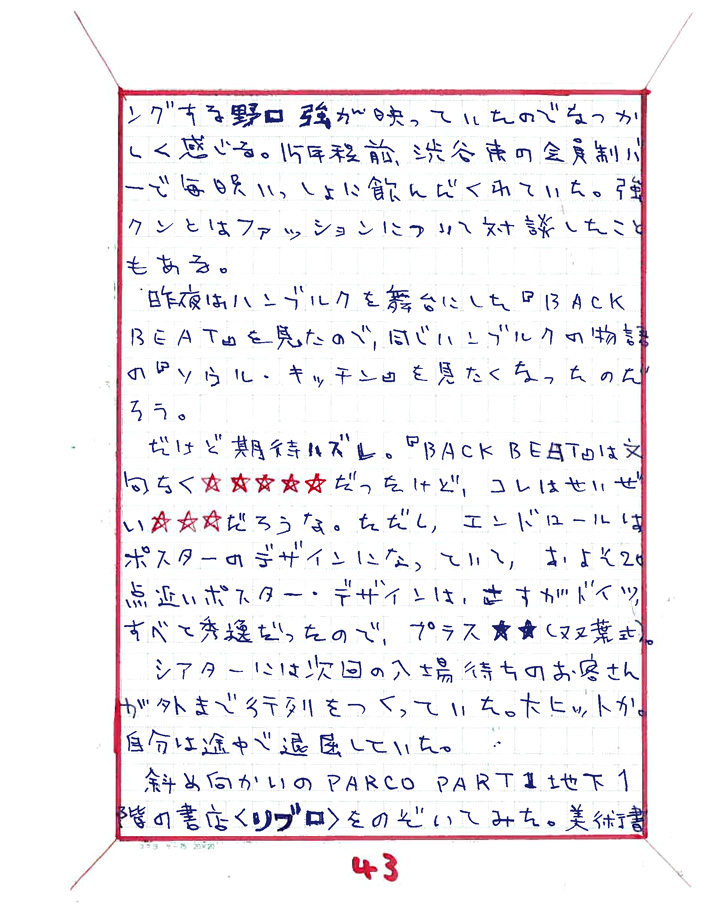 ングする野口 強が映っていたのでなつか
しく感じる。15年程前、渋谷東の会員制バ
ーで毎晩いっしょに飲んだくれていた。強
クンとはファッションについて対談したこと
もある。
昨夜はハンブルクを舞台にした『BACK
BEAT』を見たので、同じハンブルクの物語
の『ソウル・キッチン』を見たくなったのだ
ろう。
だけど期待ハズレ。『BACK BEAT』は文
句なく☆☆☆☆☆だったけど、コレはせいぜ
い☆☆☆だろうな。ただし、エンドロールは
ポスターのデザインになっていて、およそ20
点近いポスター・デザインは、さすがドイツ、
すべて秀逸だったので、プラス★★(双葉式)。
シアターには次回の入場待ちのお客さん
が外まで行列をつくっていた。大ヒットか。
自分は途中で退屈していた。
斜め向かいのPARCO PART1地下1
階の書店〈リブロ〉をのぞいてみた。美術書
コクヨ ケ-75 20×20
43